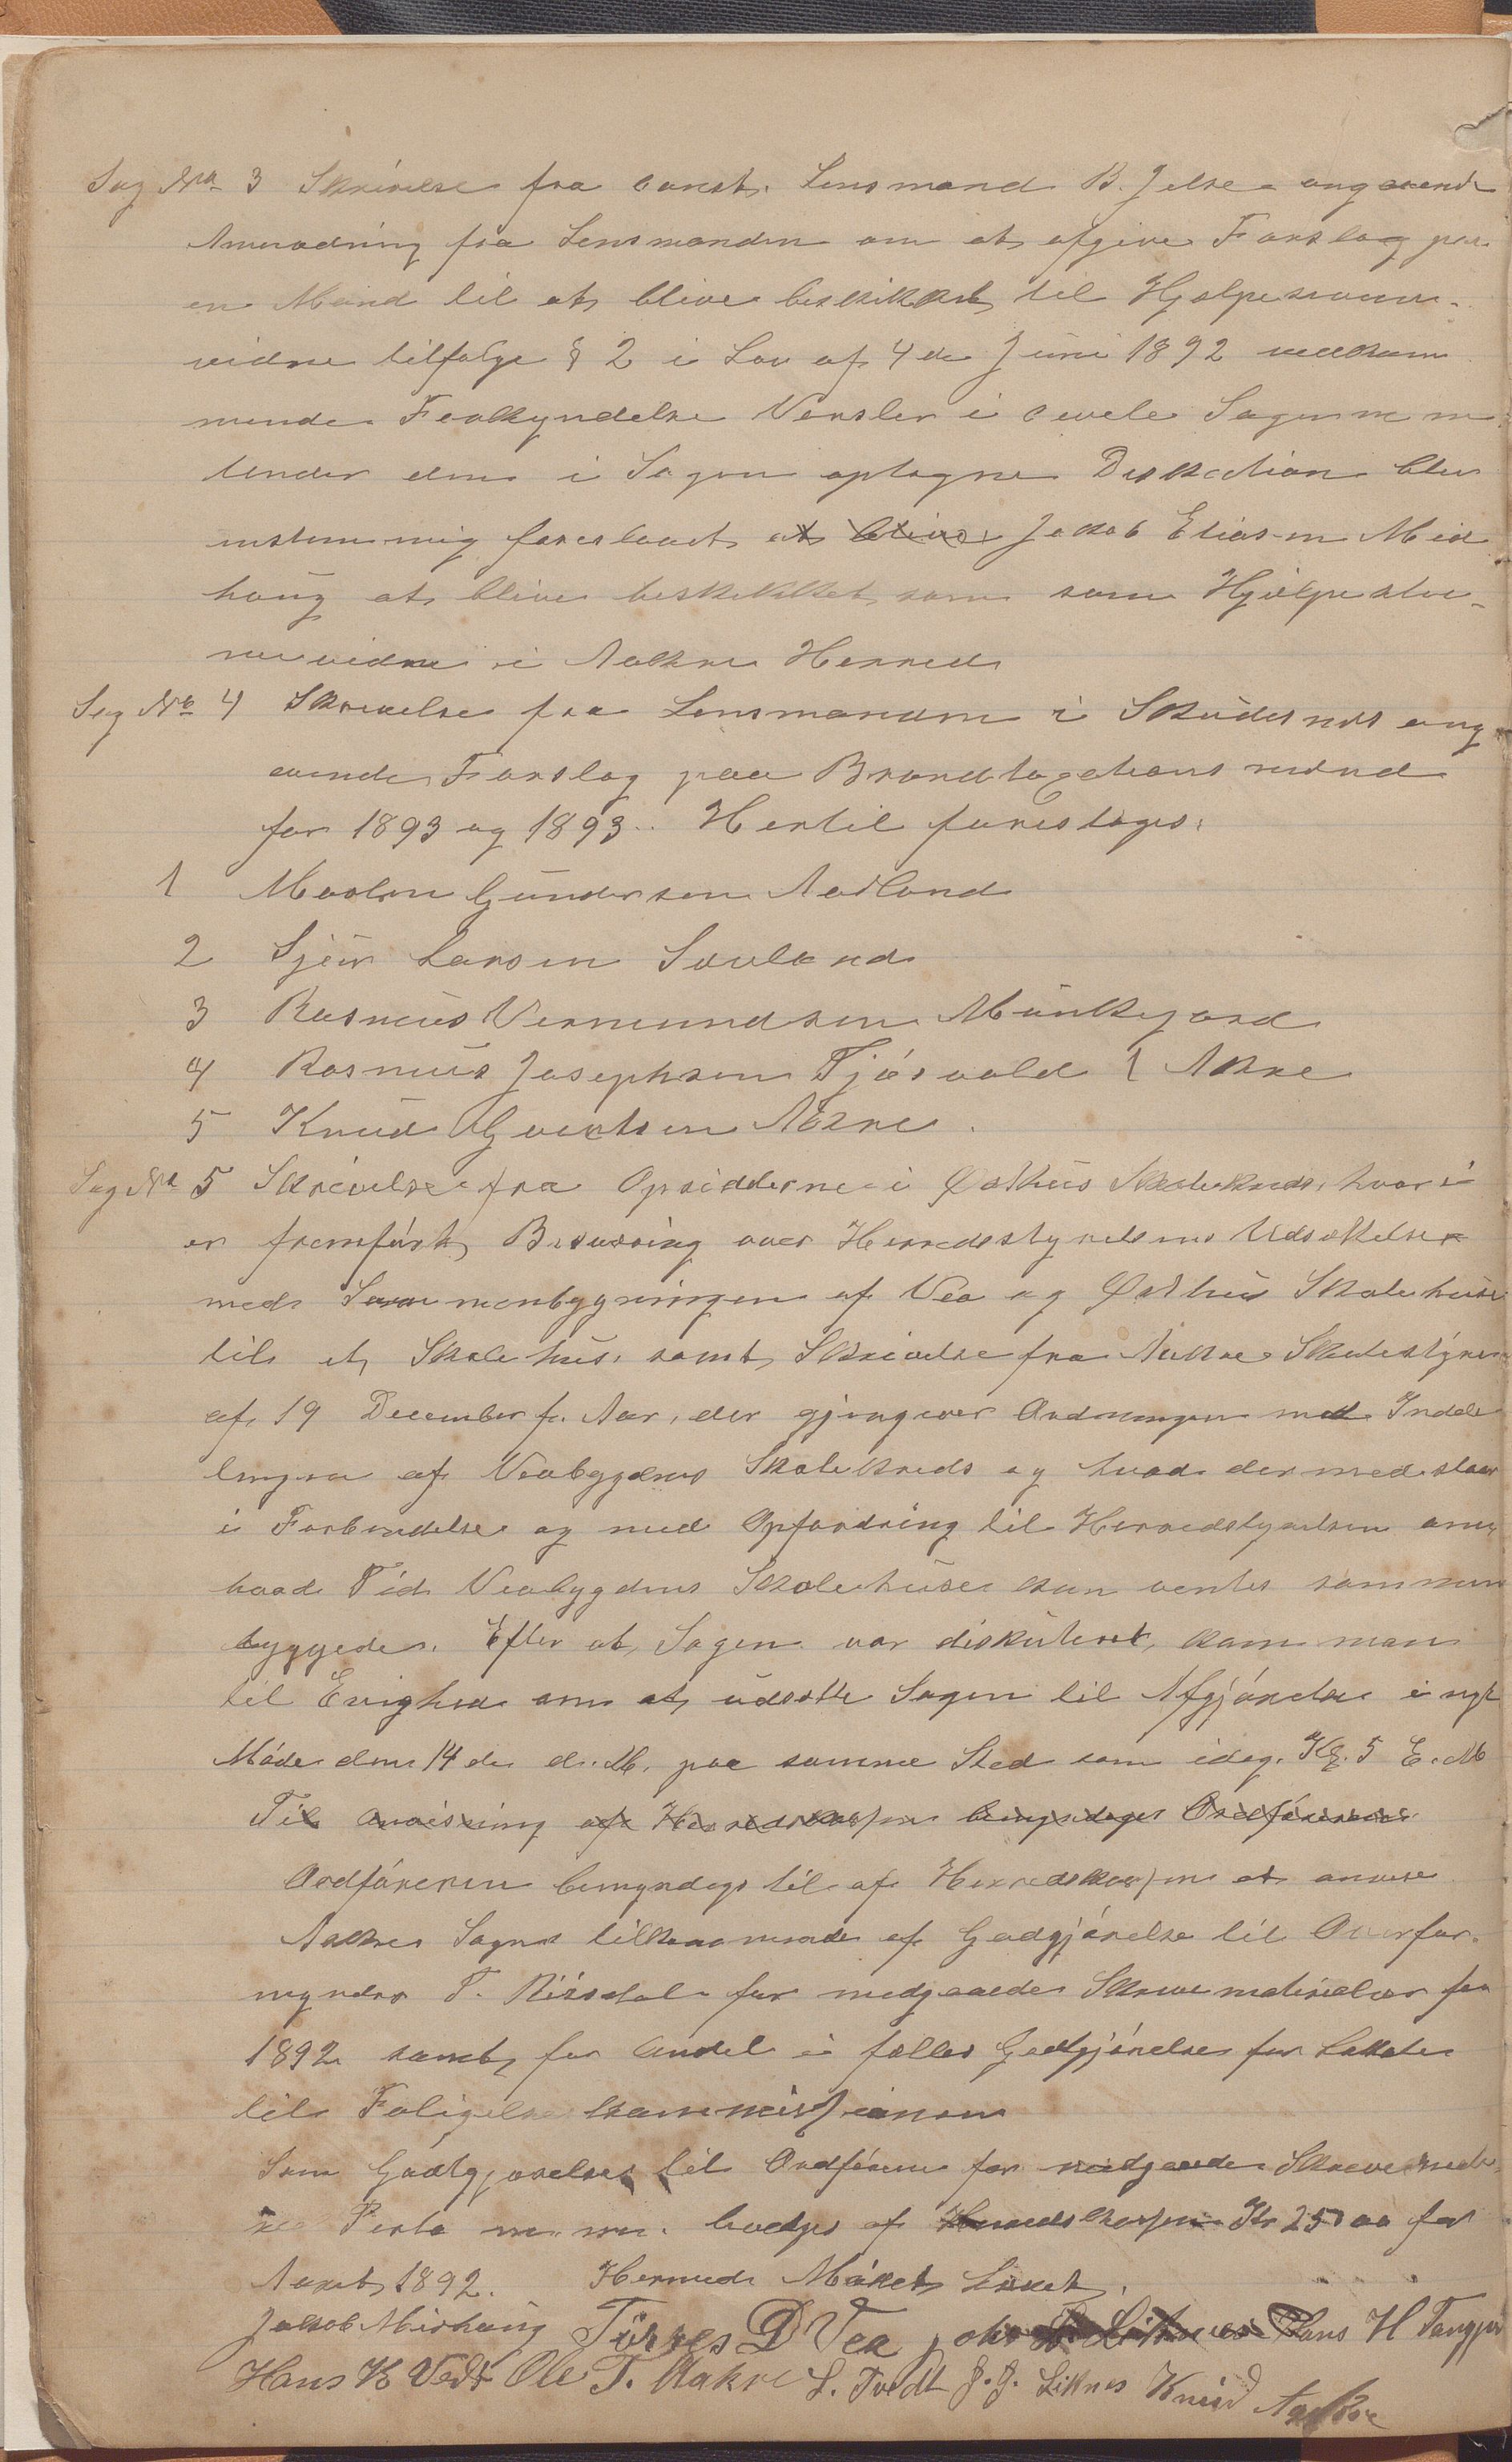 Sag No 3 Skrivelse fra const. Lensmand B. Jelse angaaende
Anmodning fra Lensmanden om at afgive Forslag paa
en Mand til at blive beskikket til Hjælpestevne-
vidne tilfølge § 2 i Lov af 4de Juni 1892 vedkom
mende Forkyndelse Varsler i civile Sager m m.
Under den i Sagen optagne Diskution blev
enstemmig foreslaaet at blive Jakob Eliassen Mid
haug at blive beskikket som som Hjælpestev-
nevidne i Aakre Herred
Sag No 4 Skrivelse fra Lensmanden i Skudesnes ang
aaende Forslag paa Brandtaxationsmænd
for 1893 og 1893. Hertil foreslages:
1 Gundersen Aadland
2 Sjur Larsen Sævland
3 Rasmus Vermundsen Munkejord
4 Rasmus Josephsen Tjøsvold Akre
5 Knud Govertsen Akre.
Sag No 5 Skrivelse fra Opsidderne i Østhus Skolekreds, hvori
er fremført Besværing over Herredsstyrelsens Udsættelse
med Sammenbygningen af Vea og Østhus Skolehuse
til et Skolehus. samt Skrivelse fra Aakre Skolestyre
af 19 December f. Aar, der gjengiver Ordningen med Indde
lingen af Veabygdens Skolekreds og hvad dermed staar
i Forbindelse og med Opfordring til Herredstyrelsen om
hvad Tid Veabygdens Skolehuse kan ventes sammen
byggede. Efter at Sagen var diskuteret, kom man
til Enighed om at udsætte Sagen til Afgjørelse i nyt
Møde den 14de d. M. paa samme Sted som idag. Kl. 5 E. M
Til Anvisning af Herredskassen bemyndiges Ordføreren
Ordføreren bemyndiges til af Herredskassen at anvise
Aakre Sogns tilkommende af Godgjørelse til Overfor-
mynder T. for medgaaede Skrivematerialier for
1892 samt for Andel i fælles Godtgjørelse for Lokale
til Forligelseskommissionen
Som Godtgjørelse til Ordføreren for medgaaede Skrivemate-
Porto m. m. af Herredskassen Kr 25 00 for
Aaret 1892. Hermed Mødet Sluttet.
Jakob Midhaug Tørres D Vea John Liknes Hans H Tangjer
Hans K Vedø Ole T. Aakre L. Tvedt J. J. Liknes Knud Aakre